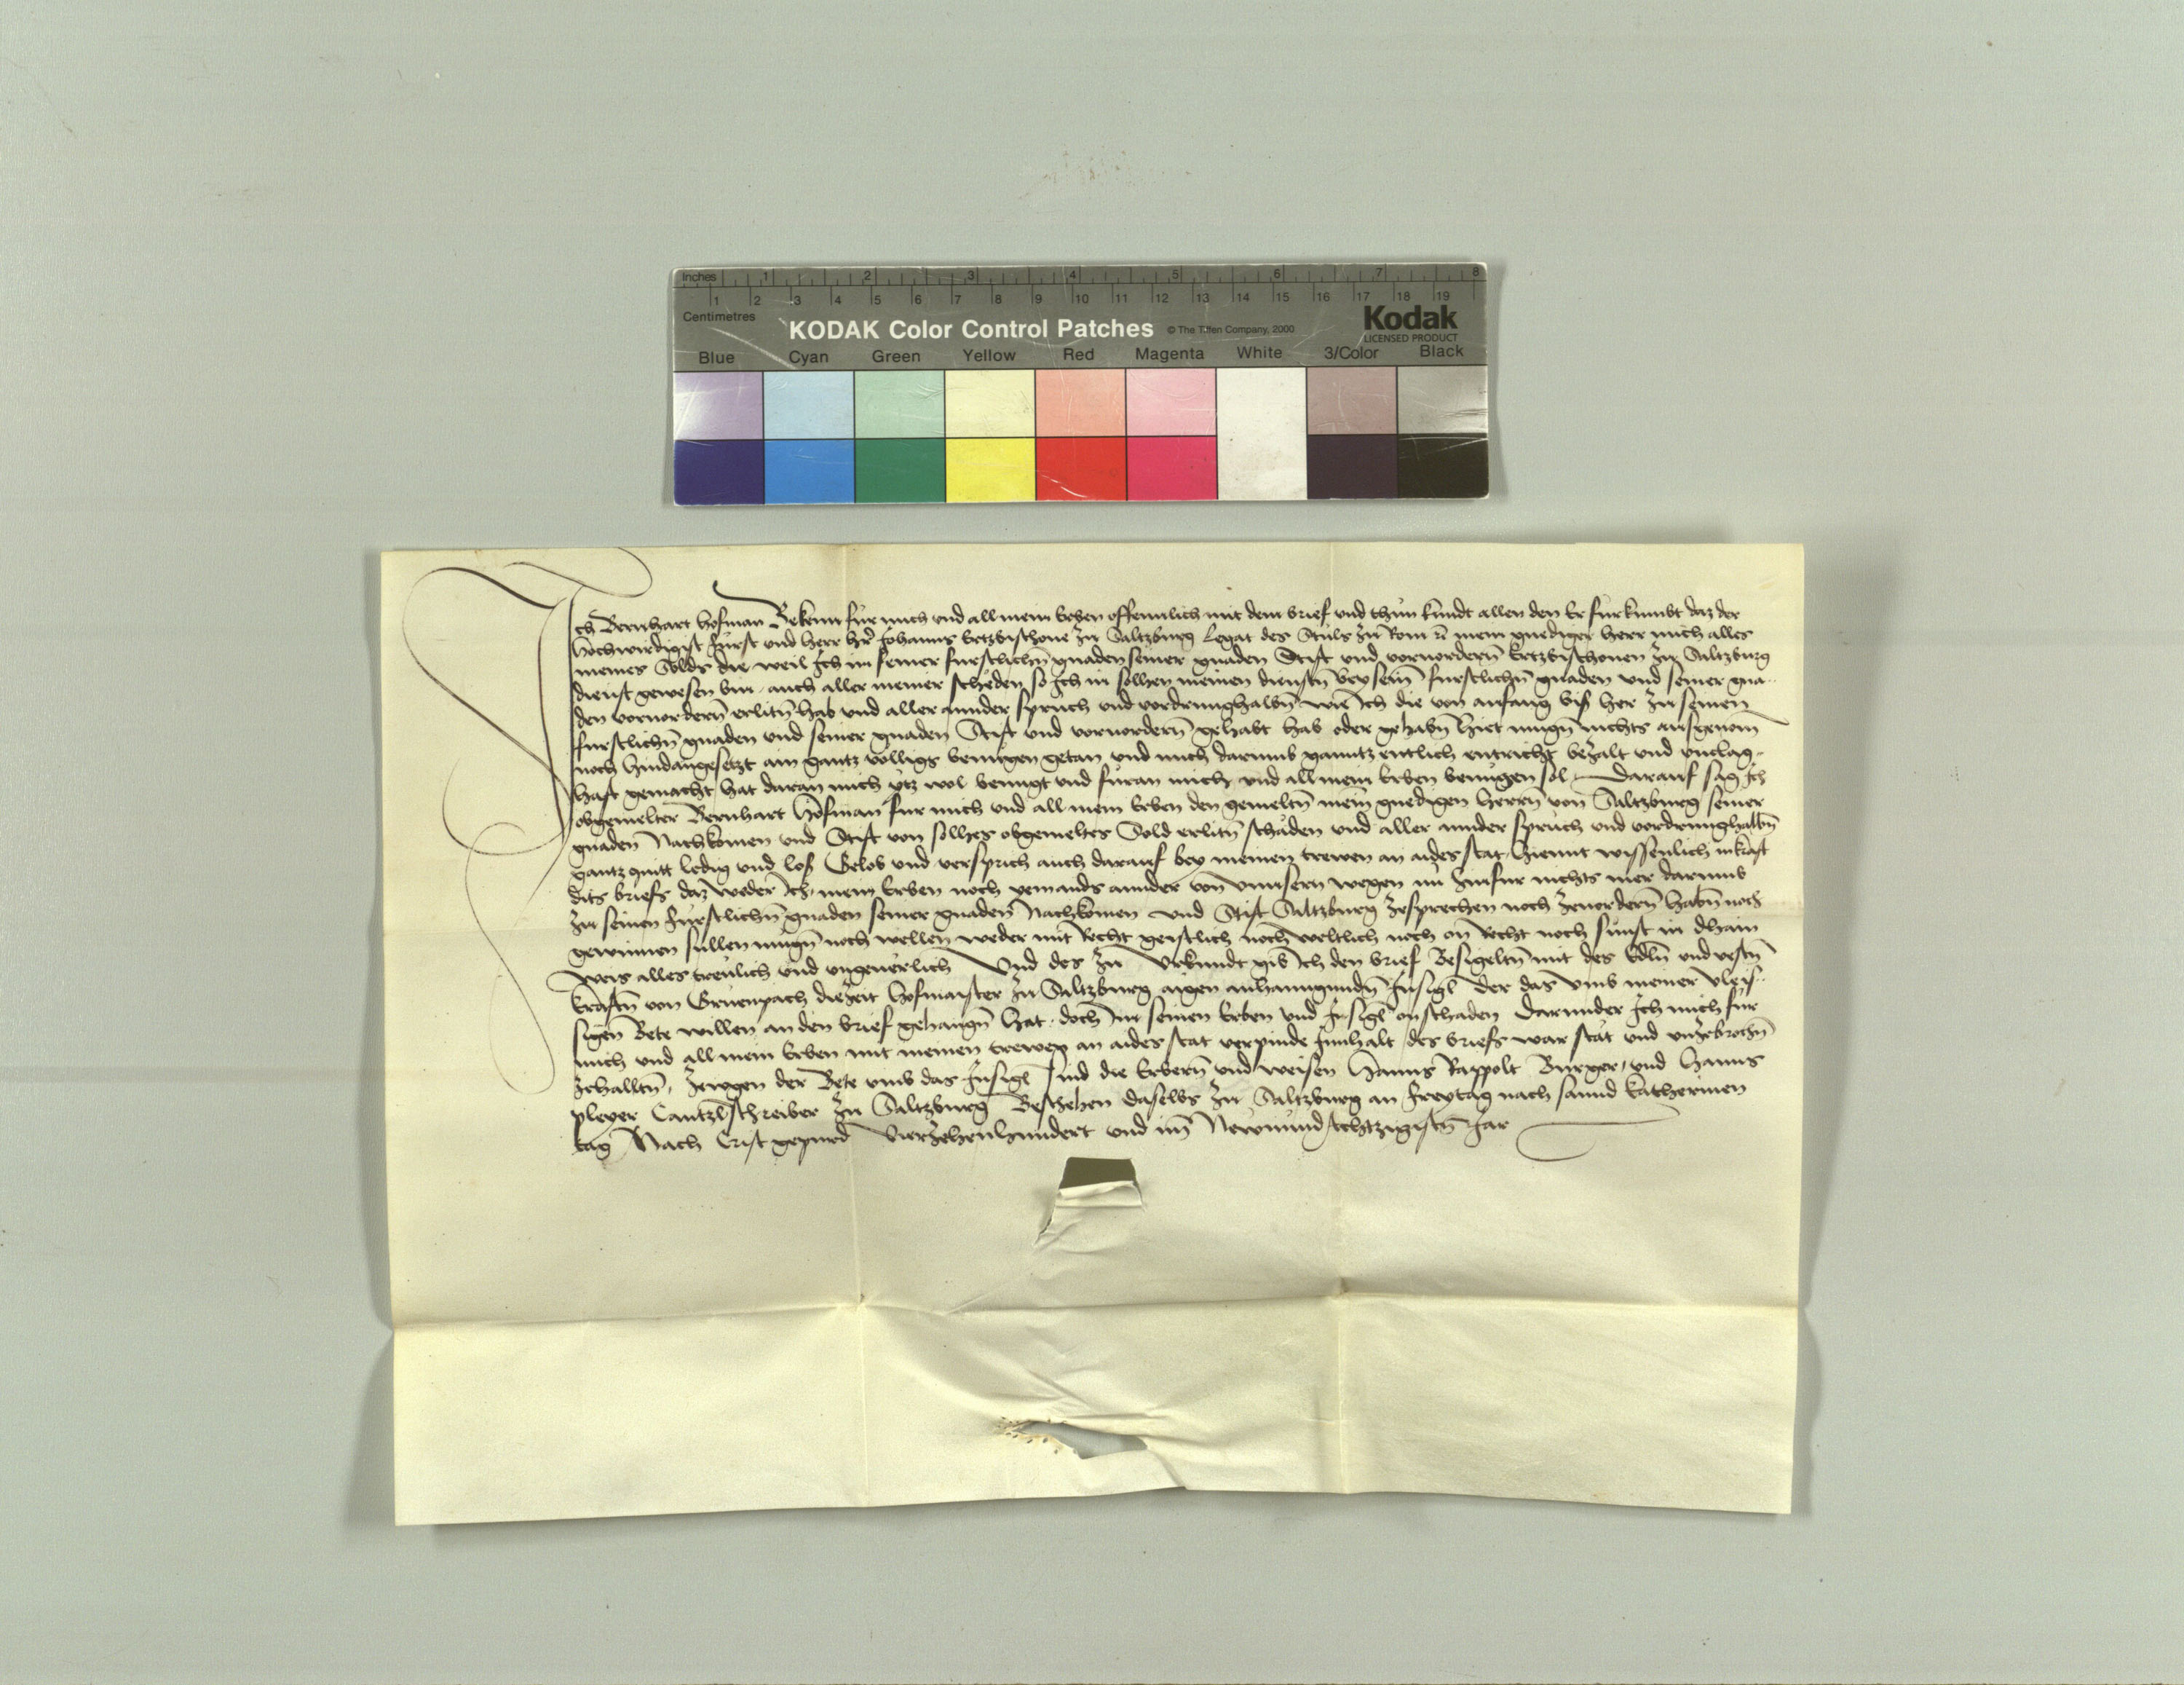 Inches 1 2 3 4 5 6 7 8
1 2 3 4 5 6 7 8 9 10 11 12 13 14 15 16 17 18 19
Centimetres
KODAK Color Control Patches © The Tiffen Company, 2000 Kodak
LICENSED PRODUCT
Blue Cyan Green Yellow Red Magenta White 3/Color Black
Ich Bernhart Hofman Bekenn für mich und all mein Erben offennlich mit dem brief und thun kundt allen den Er fürkumbt daz der
hochwirdigist Fürst und herr hr̄ Johanns Ertzbischove zu Saltzburg Legat des Stuls zu Rom mein gnediger herr mich alles
meines Solds die weil Ich in seiner furstlichn̄ gnaden seiner gnaden Stift und vorvordern̄ Ertzbischoven zu Saltzburg
dienst gewesen bin, auch aller meiner scheden so Ich in solhen meinen dienstn̄ bey sein̄ furstlichn̄ gnaden und seiner gna-
den vorvordern̄ erlitn̄ hab und aller annder spruch und vordrunghalbn̄ wie Ich die von anfang bis her zu seinen
furstlichn̄ gnaden und seiner gnaden Stift und vorvordern̄ gehabt hab oder gehabn̄ hiet mugn̄ nichts ausgenom̄
noch hindangesetzt ain gantz volligs benügen getan und mich darumb gantz entlich entricht bezalt und unclag-
haft gemacht hat daran mich ytz wol benugt und füran mich und all mein Erben benügen sol, Darauf sag Ich
obgemelter Bernhart Hofman für mich und all mein Erben den gemeltn̄ mein̄ gnedigen herrn̄ von Saltzburg seiner
gnaden Nachkomen und Stift von solhes obgemeltes Sold erlitn̄ schäden und aller annder spruch und vordrunghalbn̄
gantz quitt ledig und los Gelob und versprich auch darauf bey meinen trewen an aides stat hiemit wissenlich inkraft
dits briefs daz weder Ich, mein Erben noch yemands annder von unnsern wegen nu hinfur nichts mer darumb
zu seinen Furstlichn̄ gnaden seiner gnaden Nachkomen und Stift Saltzburg zesprechen noch zevordern̄ habn̄ noch
gewinnen süllen mugn̄ noch wellen weder mit Recht geistlich noch weltlich noch on Recht noch sünst in dhain
weis alles treulich und ungeverlich Und des zu Urkundt gib Ich den brief Besigeltn̄ mit des Edln̄ und vestn̄
kraftn̄ von Gruenpach diezeit Hofmaister zu Saltzburg aigen anhanngundn̄ Insigl der das umb meiner vleis-
sigen Bete willen an den brief gehangn̄ hat, doch im seinen Erben und Insigl on schaden Darunder Ich mich für
mich und all mein Erben mit meinen trewen an aides stat verpinde Innhalt des briefs war stät und unzebrochn̄
zehalltn̄, Zewgen der Bete umb das Insigl sind die Erbern̄ und weisen Hanns Rappolt Burger, und Hanns
pleyer Cantzlschreiber zu Saltzburg Beschehen daselbs zu Saltzburg an Freytag nach sannd Katherinen
tag Nach Crist gepurd Vierzehenhundert und im̄ Newnundachtzigistn̄ Jar